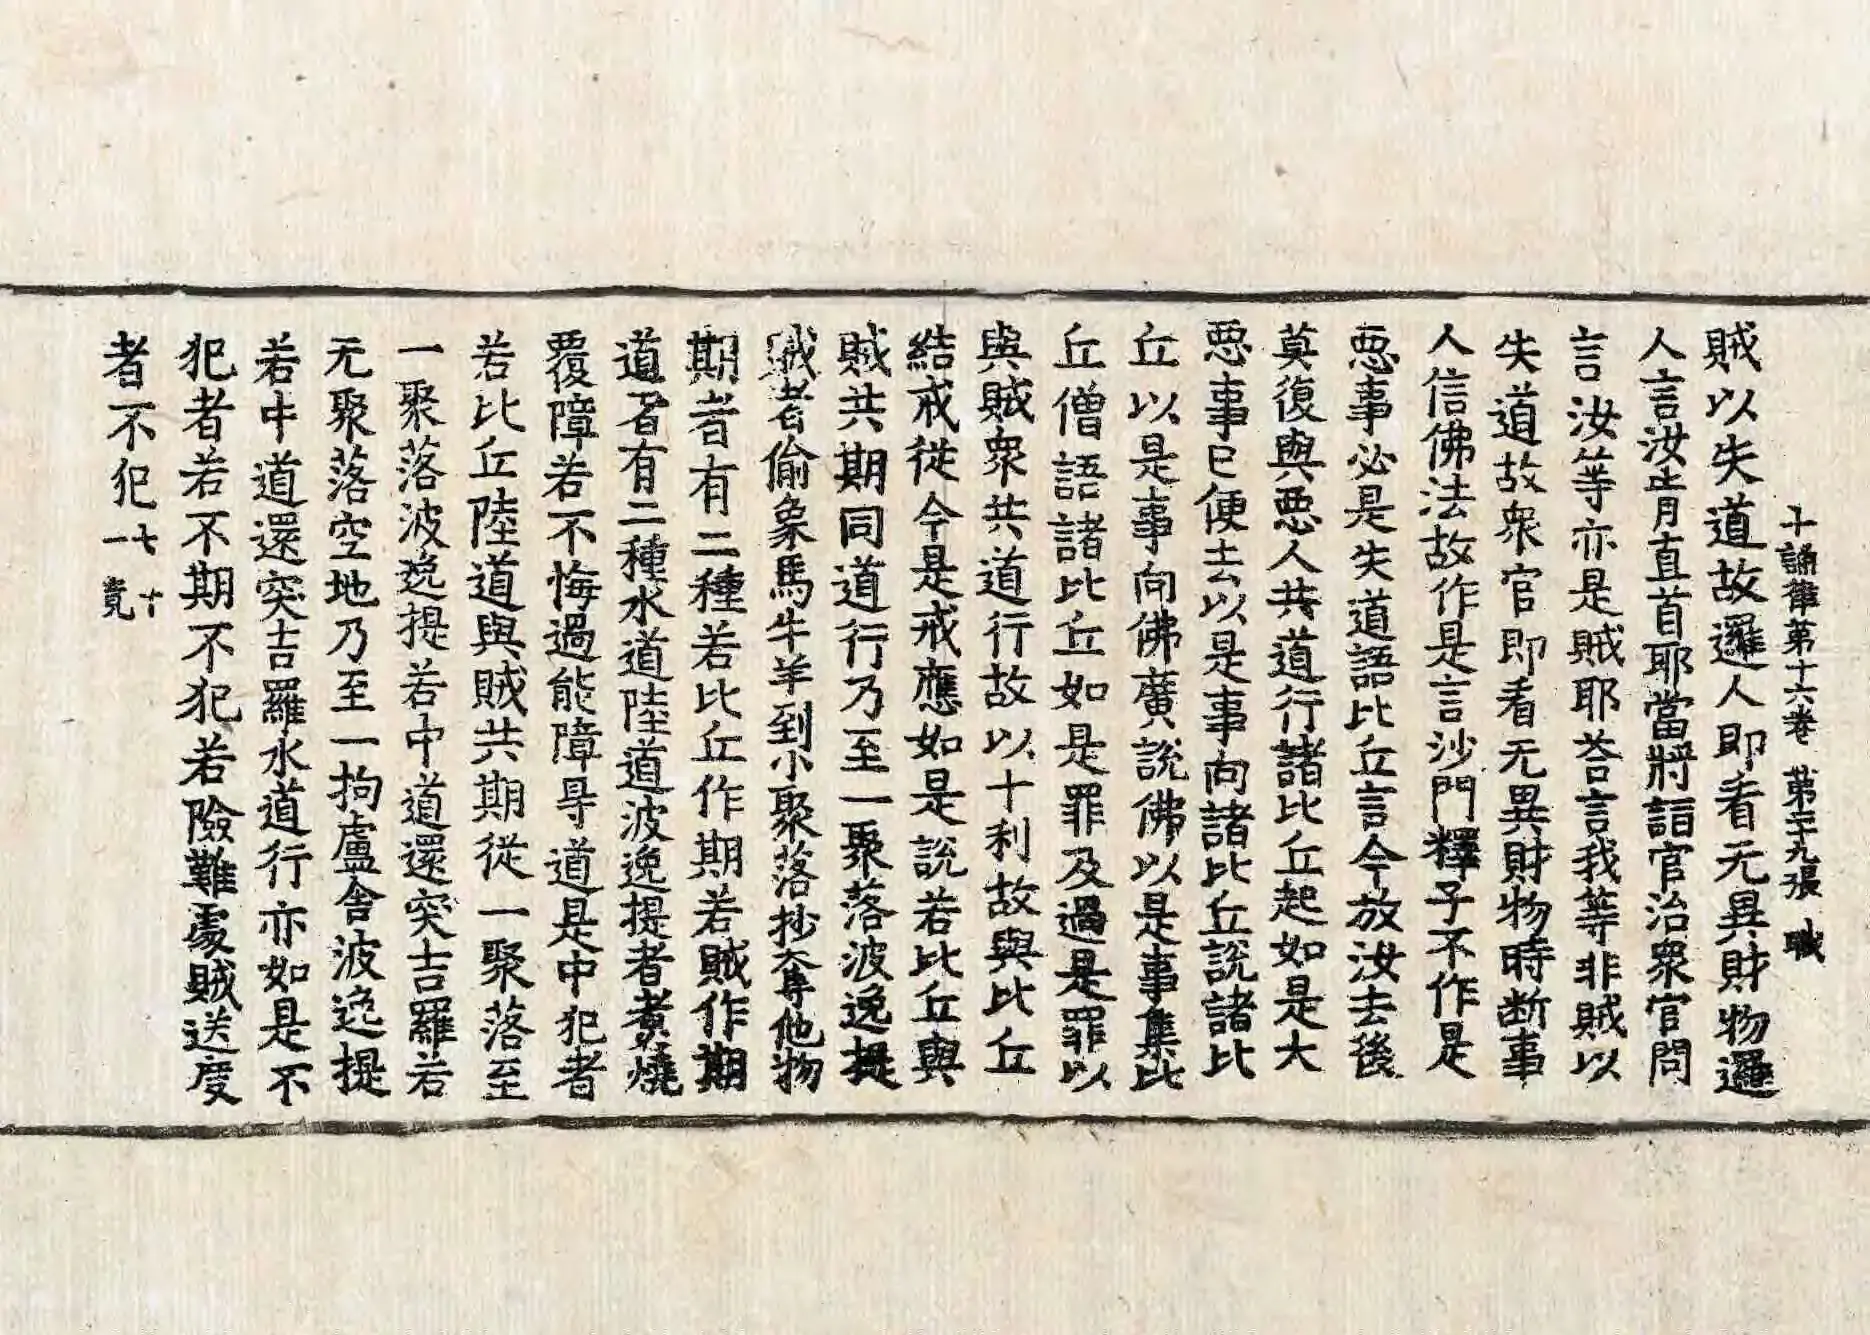 十誦律第十六卷　第二十九張　職
賊以失道故邏人即看无異財物邏
人言汝肯直首耶當將詣官治衆官問
言汝等亦是賊耶荅言我等非賊以
失道故衆官即看无異財物時断事
人信佛法故作是言沙門釋子不作是
惡事必是失道語比丘言今放汝去後
莫復與惡人共道行諸比丘起如是大
惡事已便去以是事向諸比丘說諸比
丘以是事向佛廣說佛以是事集比
丘僧語諸比丘如是罪及過是罪以
與賊衆共道行故以十利故與比丘
結戒從今是戒應如是說若比丘與
賊共期同道行乃至一聚落波逸提
賊者偷象馬牛羊到小聚落抄奪他物
期者有二種若比丘作期若賊作期
道者有二種水道陸道波逸提者煮燒
覆障若不悔過能障㝵道是中犯者
若比丘陸道與賊共期從一聚落至
一聚落波逸提若中道還突吉羅若
无聚落空地乃至一拘盧舍波逸提
若中道還突吉羅水道行亦如是不
犯者若不期不犯若險難處賊送度
者不犯七十一竟